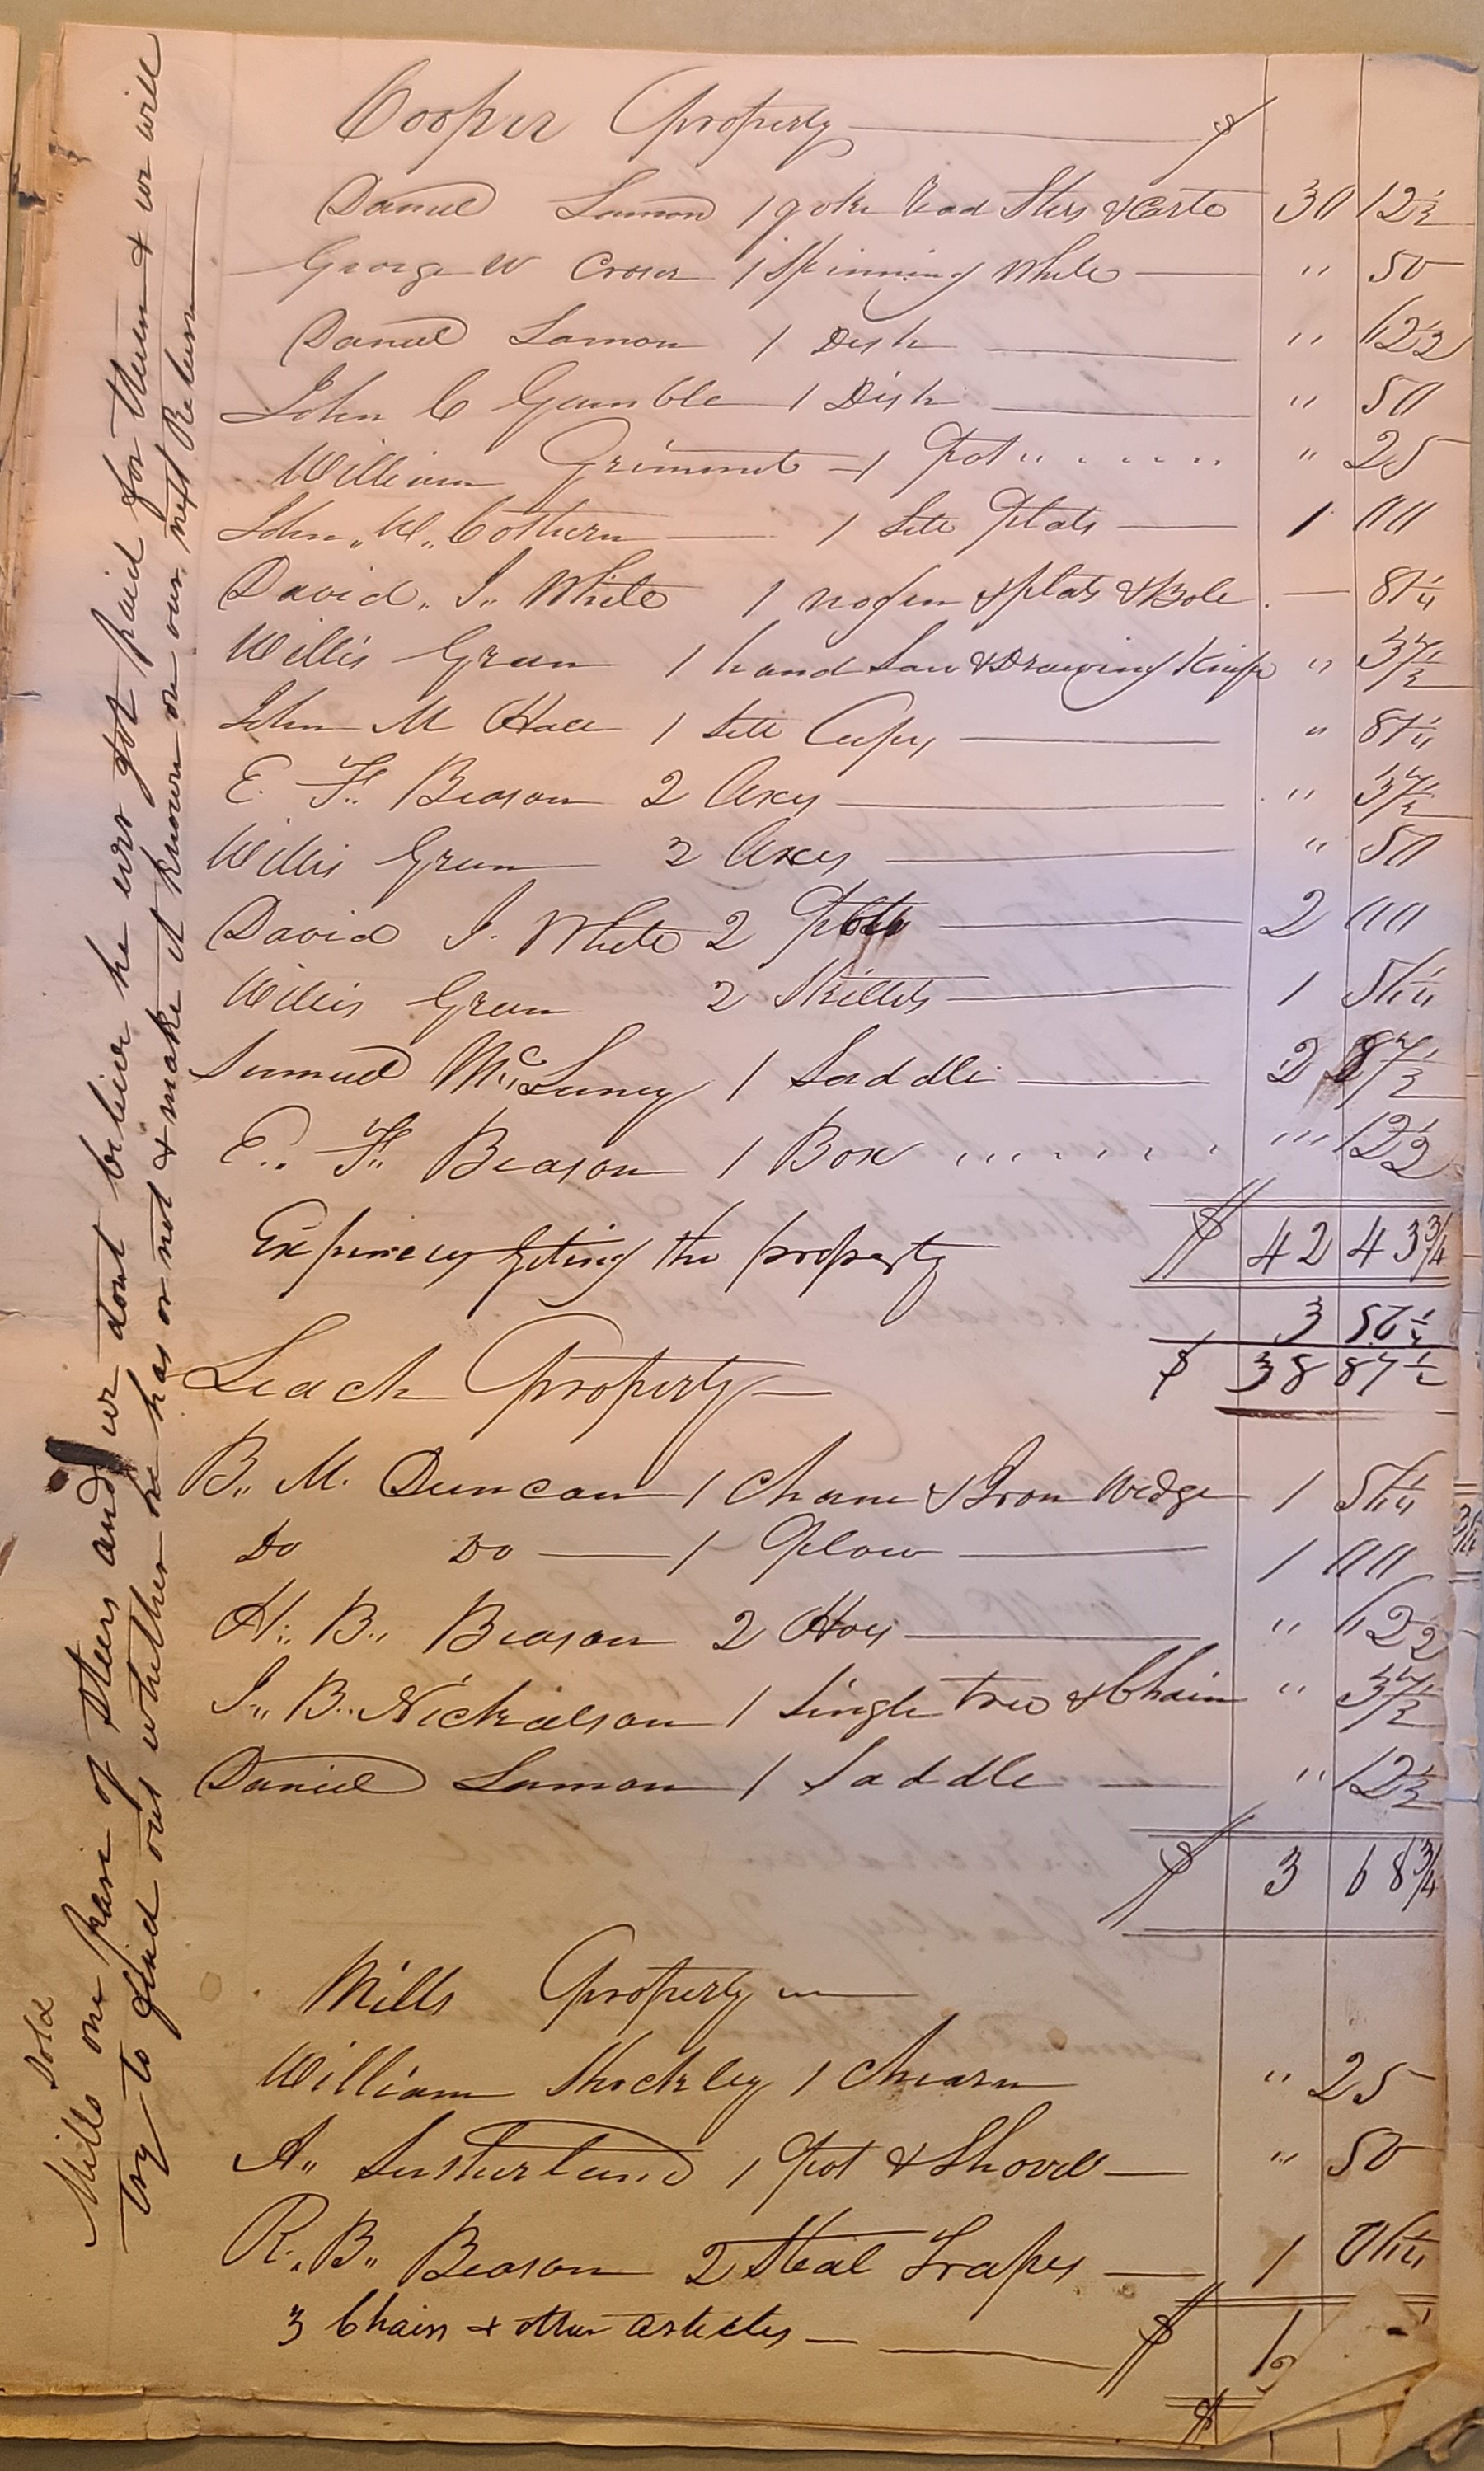 Cooper Property $
Daniel Lamon 1 yoke Sters & Carte 30 12½
George W Croser 1 Spinning Whele " 50
Daniel Lamon 1 Dish " 12½
John C Gamble 1 Dish " 50
William Grimmet 1 Pot " 25
John, W, Cothern 1 Sett Plats 1 00
David, J, White 1 nogen & plats & Bole 81¼
Willis Green 1 hand Saw & Drawing Knife " 37½
John M Hall 1 Sett Cups " 81¼
E. F. Beason 2 Axes " 37½
Willis Green 2 Axes " 50
David J. White 2 Pots 2 00
Willis Green 2 Skillets 1 51¼
Samuel McLuney 1 Saddle 2 87½
E. F. Beason 1 Box " 12½
$ 42 43¾
Expences geting the property
3 56¼
$ 38 87½
Leach Property
B. M. Duncan 1 Chane & Iron Wedge 1 51¼
Do Do 1 Plow 1 00
H. B. Beason 2 Hoes " 12½
J. B. Nickalson 1 Single tree & Chain " 37½
Daniel Lamon 1 Saddle " 12½
$ 3 68¾
Mills Property
William Shockley 1 Chearn " 25
A. Sutherland 1 Pot & Shovel " 50
R. B. Beason 2 Steal Trapes 1
3 Chain & other articles $ 1
$
Sold
Mills one pare of Steers and we dont believe he ever got paid for them & we will
try to find out whether he has or not & make it known on our next Return